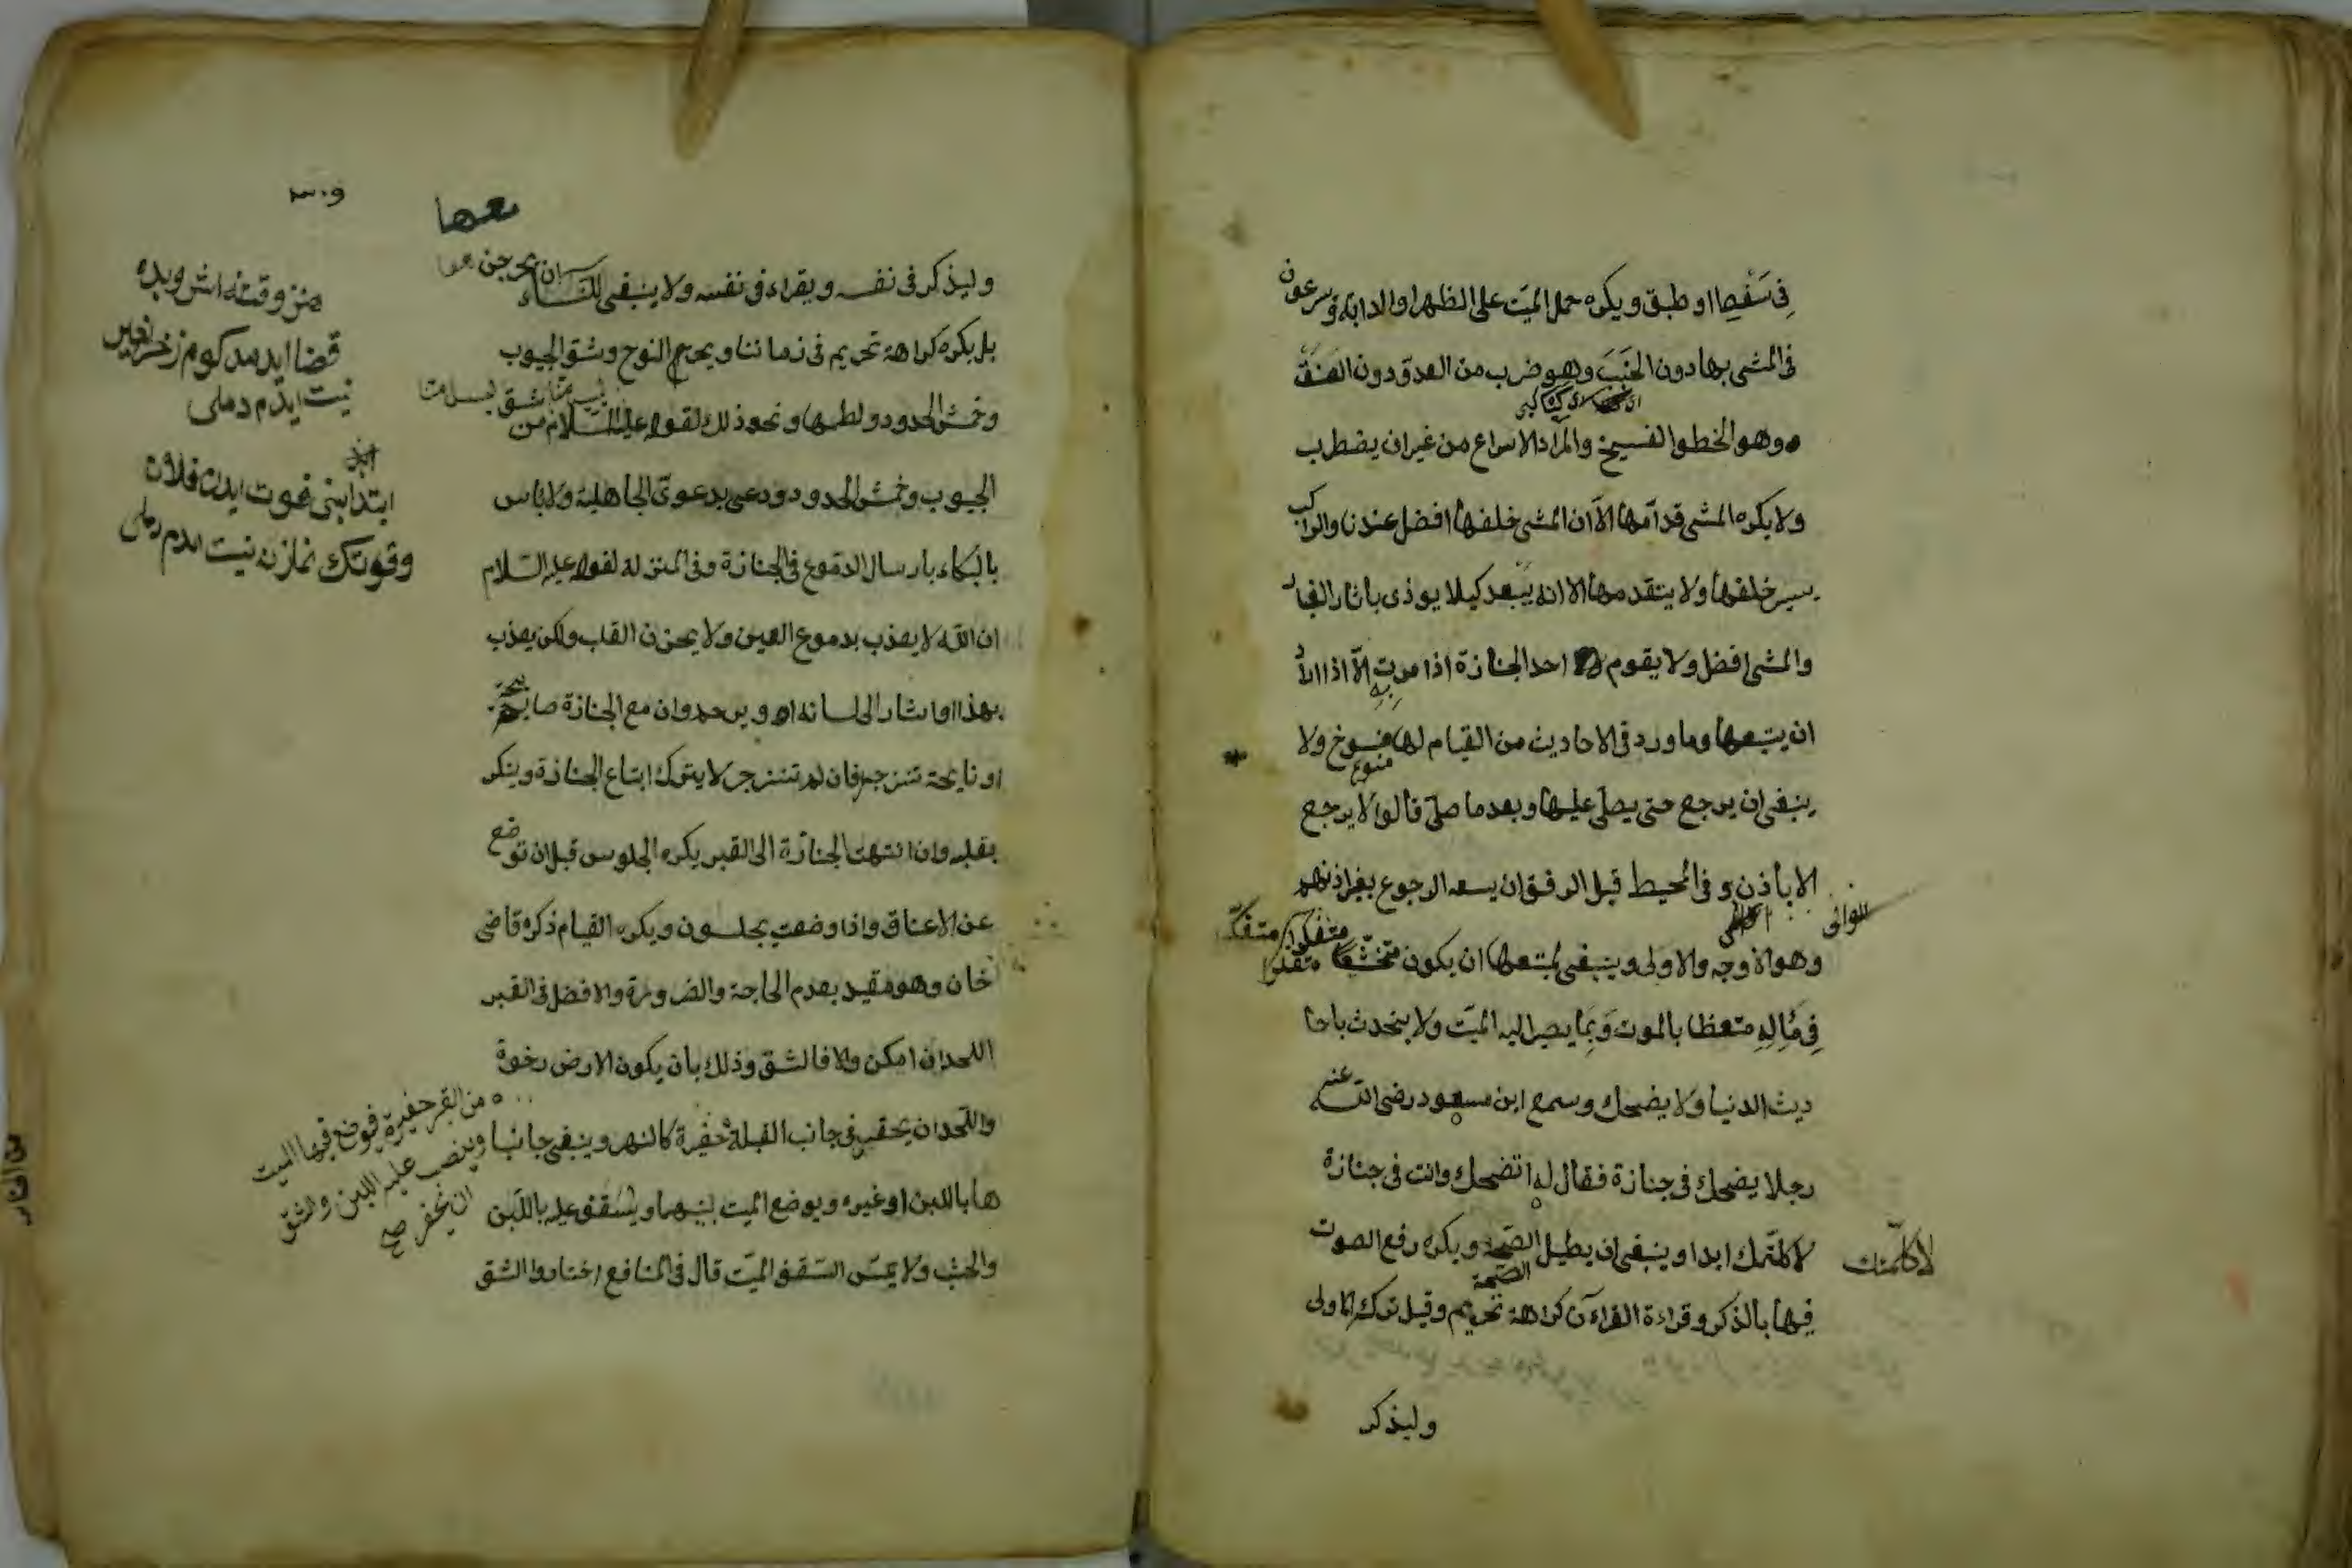 في سفط او طبق ويكره حمل الميت على الظهر او الدابة ويسرعون
في المشي بها دون الخبب وهو ضرب من العدو دون العنق
وهو الخطو الفسيح والمراد الاسراع من غير ان يضطرب
ولا يكره المشي قدامها الا ان المشي خلفها افضل عندنا والراكب
يسير خلفها ولا يتقدمها الا انه يبعد كيلا يوذى باثار الغبار
والمشي افضل ولا يقوم احد الجنازة اذا مرت به الا اذا اراد
ان يتبعها وما ورد في الاحاديث من القيام لها منسوخ ولا
منسوخ
ينبغي ان يرجع حتى يصلي عليها وبعد ما صلى قالوا لا يرجع
الا باذن وفي المحيط قبل الدفن ان يسعه الرجوع بغير اذنهم
وهو الاوجه والاولى وينبغي لمتبعها ان يكون متخشعا متفكرا
متفكرا متفكرا
في مآله متعظا بالموت وبما يصير اليه الميت ولا يتحدث باحا
ديث الدنيا ولا يضحك وسمع ابن مسعود رضى الله عنه
رجلا يضحك في جنازة فقال له اتضحك وانت في جنازة
لا كلمتك ابدا وينبغي ان يطيل الصمت ويكره رفع الصوت
لا كلمتك
فيها بالذكر وقراءة القراءن كراهة تحريم وقيل ترك الاولى
وليذكر
٣٠٩
معها
وليذكر في نفسه ويقراء في نفسه ولا ينبغي للنساء ان يخرجن معها
بل يكره كراهة تحريم في زماننا ويحرم النوح وشق الجيوب
وخمش الخدود ولطمها ونحو ذلك لقوله عليه السلام من شق ليس منا
الجيوب وخمش الخدود ودعى بدعوى الجاهلية ولا باس
بالبكاء بارسال الدموع في الجنازة وفي المنزله لقوله عليه السلام
ان الله لا يعذب بدموع العين ولا يحزن القلب ولكن يعذب
بهذا واشار الى لسانه او يرحم وان مع الجنازة صايحة
او نايحة تنزجر فان لم تنزجر لا يترك اتباع الجنازة وينكر
بقلبه وان انتهت الجنازة الى القبر يكره الجلوس قبل ان توضع
عن الاعناق واذا وضعت يجلسون ويكره القيام ذكره قاضى
خان وهو مقيد بعدم الحاجة والضرورة والافضل في القبر
اللحد ان امكن والا فالشق وذلك بان يكون الارض رخوة
واللحد ان يحفر في جانب القبلة حفيرة كالنهر ويبنى جانبا
من القبر حفيرة فيوضع فيها الميت
وينصب عليه اللبن والشق
ان يحفر صح
ها باللبن او غيره ويوضع الميت بينهما ويسقف عليه باللبن
والخشب ولا يمس السقف الميت قال في المنافع اختاروا الشق
قضا
نيت ايدم دملى
ابتدا
فلان
نيت ايدم دملى